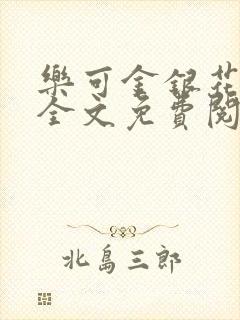 樂可金銀花
全文免費閱
北島三郎